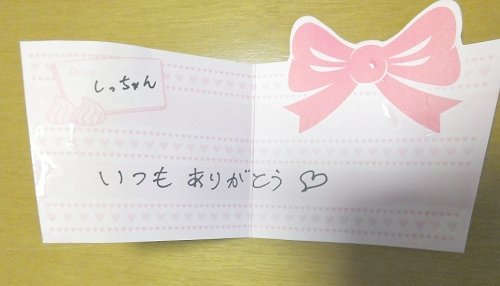 Dear
しっちゃん
いつも ありがとう♡